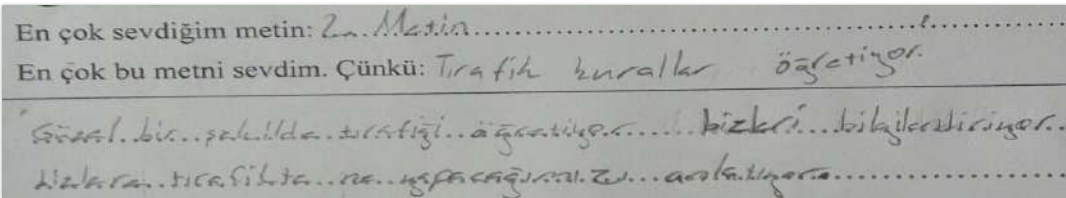 En çok sevdiğim metin: 2. Metin
En çok bu metni sevdim. Çünkü: Tırafik kurallar öğretiyor.
Güzel bir şekilde tırafiği öğretiyor bizleri bilgilendiriyor.
bizlere tırafikte ne yapacağımızı anlatıyor.